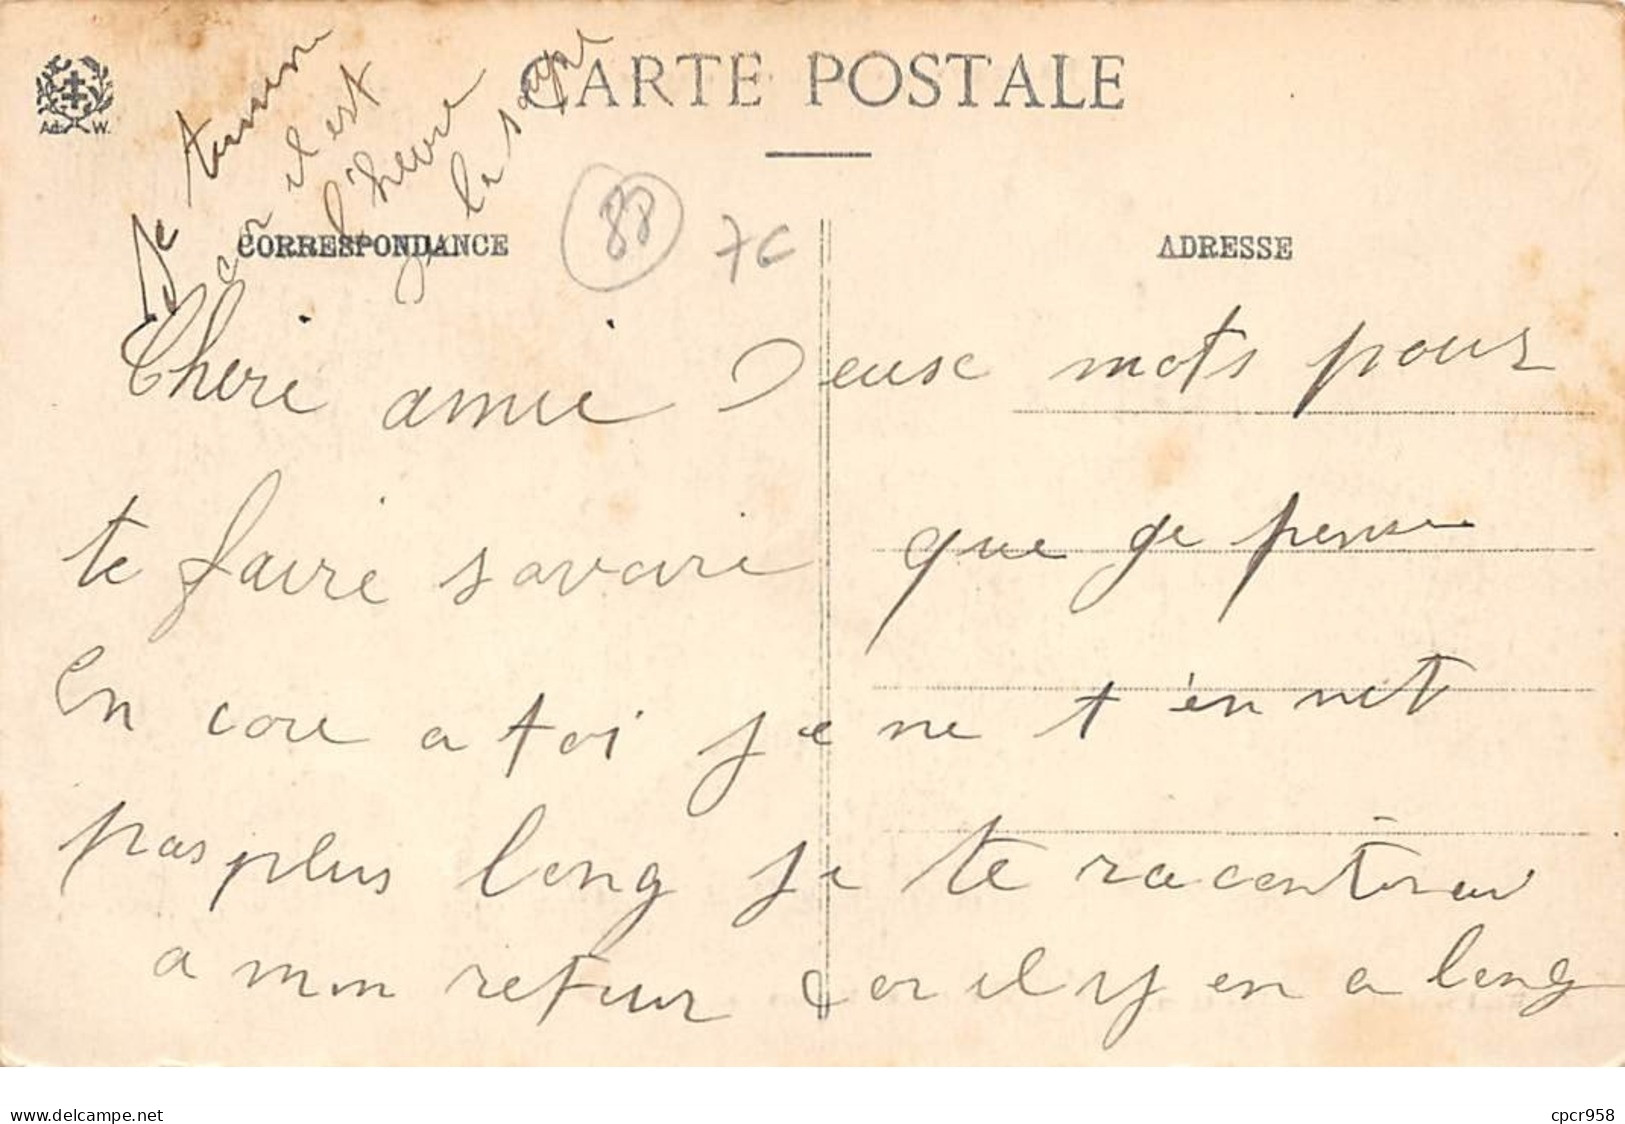 CARTE POSTALE
Ad. W.
CORRESPONDANCE
ADRESSE
88
7C
Cheri amie Deuse mots pour
te faire savoire que je pense
en core a toi je ne t'en met
pas plus long je te raconterai
a mon retour car il y en a long
Je termine
car il est
l'heure
de la soupe
www.delcampe.net
cpcr958